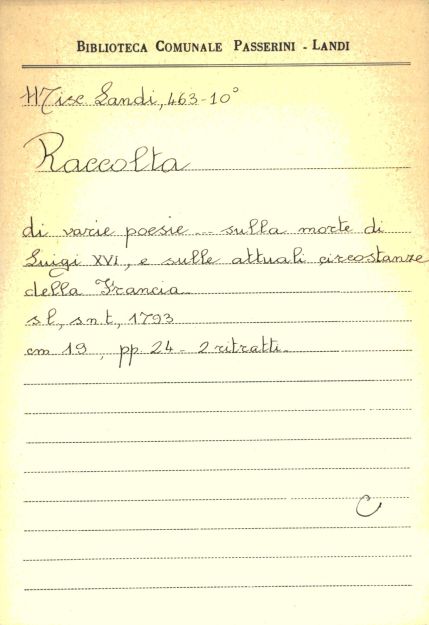 BIBLIOTECA COMUNALE PASSERINI - LANDI
Misc Landi, 463-10°
Raccolta
di varie poesie ... sulla morte di
Luigi XVI, e sulle attuali circostanze
della Francia
s l, s n t, 1793
cm 19, pp. 24 - 2 ritratti.
C